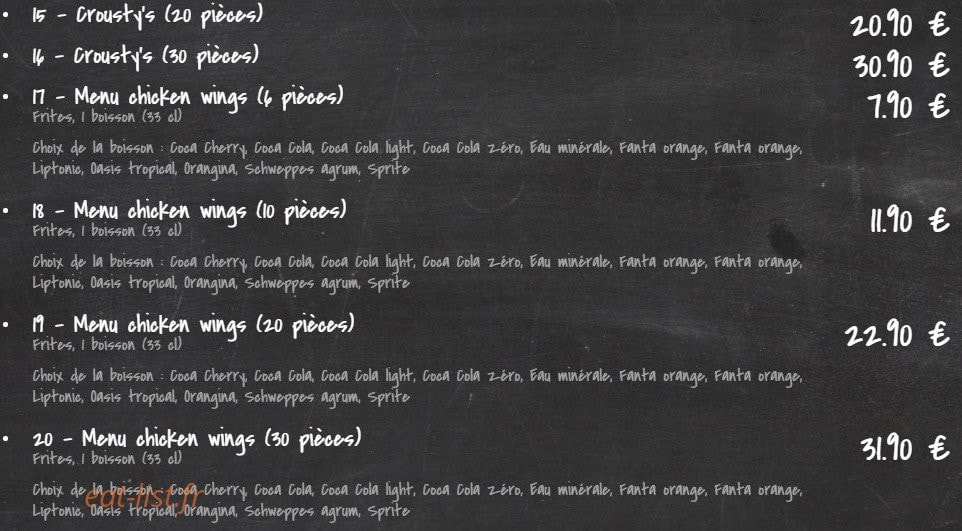 • 15 - Crousty's (20 pièces) 20.90 €
• 16 - Crousty's (30 pièces) 30.90 €
• 17 - Menu chicken wings (6 pièces) 7.90 €
Frites, 1 boisson (33 cl)
Choix de la boisson : Coca Cherry, Coca Cola, Coca Cola light, Coca Cola zéro, Eau minérale, Fanta orange, Fanta orange,
Liptonic, Oasis tropical, Orangina, Schweppes agrum, Sprite
• 18 - Menu chicken wings (10 pièces) 11.90 €
Frites, 1 boisson (33 cl)
Choix de la boisson : Coca Cherry, Coca Cola, Coca Cola light, Coca Cola zéro, Eau minérale, Fanta orange, Fanta orange,
Liptonic, Oasis tropical, Orangina, Schweppes agrum, Sprite
• 19 - Menu chicken wings (20 pièces) 22.90 €
Frites, 1 boisson (33 cl)
Choix de la boisson : Coca Cherry, Coca Cola, Coca Cola light, Coca Cola zéro, Eau minérale, Fanta orange, Fanta orange,
Liptonic, Oasis tropical, Orangina, Schweppes agrum, Sprite
• 20 - Menu chicken wings (30 pièces) 31.90 €
Frites, 1 boisson (33 cl)
Choix de la boisson : Coca Cherry, Coca Cola, Coca Cola light, Coca Cola zéro, Eau minérale, Fanta orange, Fanta orange,
eat-list.fr
Liptonic, Oasis tropical, Orangina, Schweppes agrum, Sprite